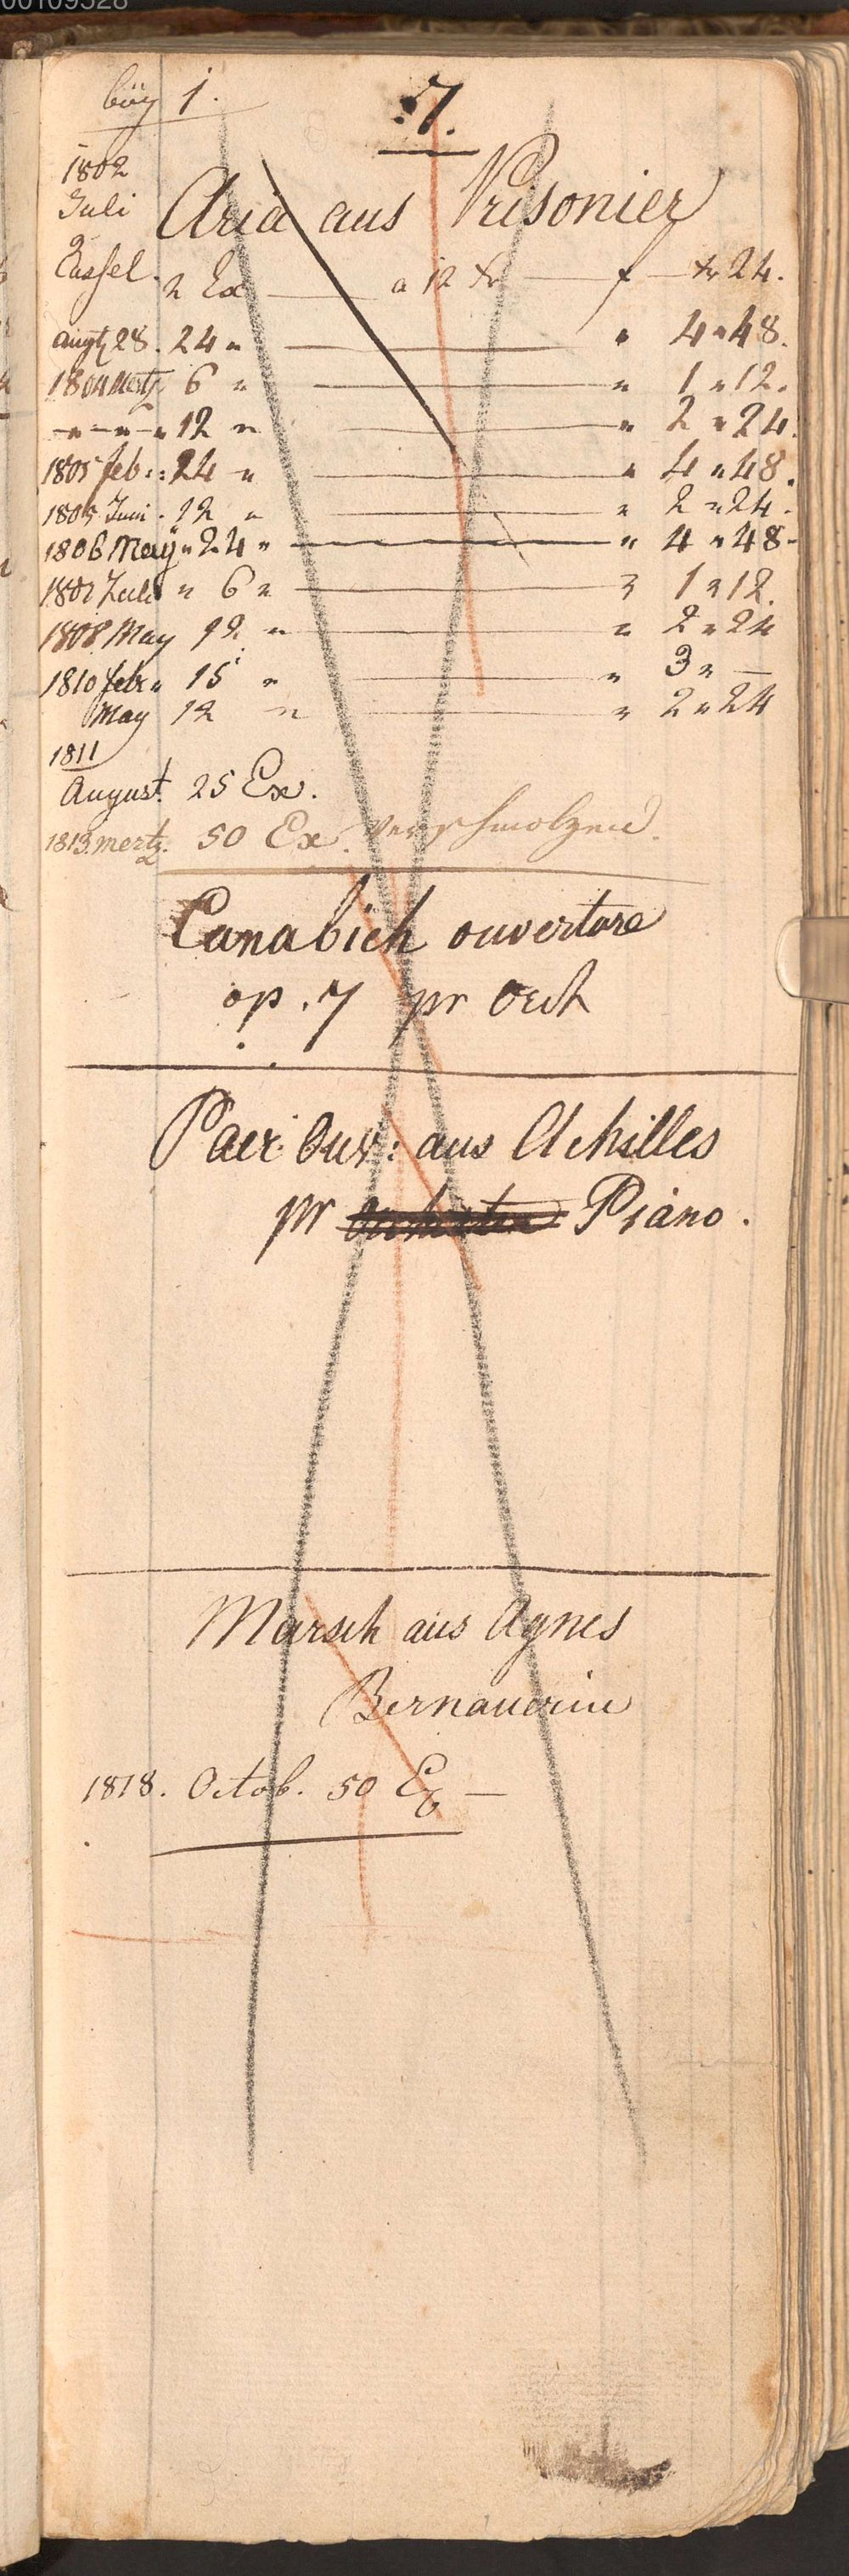 00109528
büg 1.
7.
1802
Juli
Aria aus Prisonier
Cassel. 2 Ex — a 12 kr — f — kr 24.
augst 28. 24 " — " 4 " 48.
1804 Mertz 6 " — " 1 " 12.
— " — " — " 12 " — " 2 " 24.
1805 feb:: 24 " — " 4 " 48.
1805 Juni. 12 " — " 2 " 24.
1806 May " 24 " — " 4 " 48.
1807 Juli " 6 " — " 1 " 12.
1808 May 12 " — " 2 " 24
1810 febr " 15 " — " 3 " —
May 12 " — " 2 " 24
1811
August. 25 Ex.
1813. mertz. 50 Ex. verschmolzen.
Canabich ouverture
op. 7 pr Orch
Paer. Ouv: aus Achilles
pr Orchester Piano.
Marsch aus Agnes
Bernauerin
1818. Octob. 50 Ex —